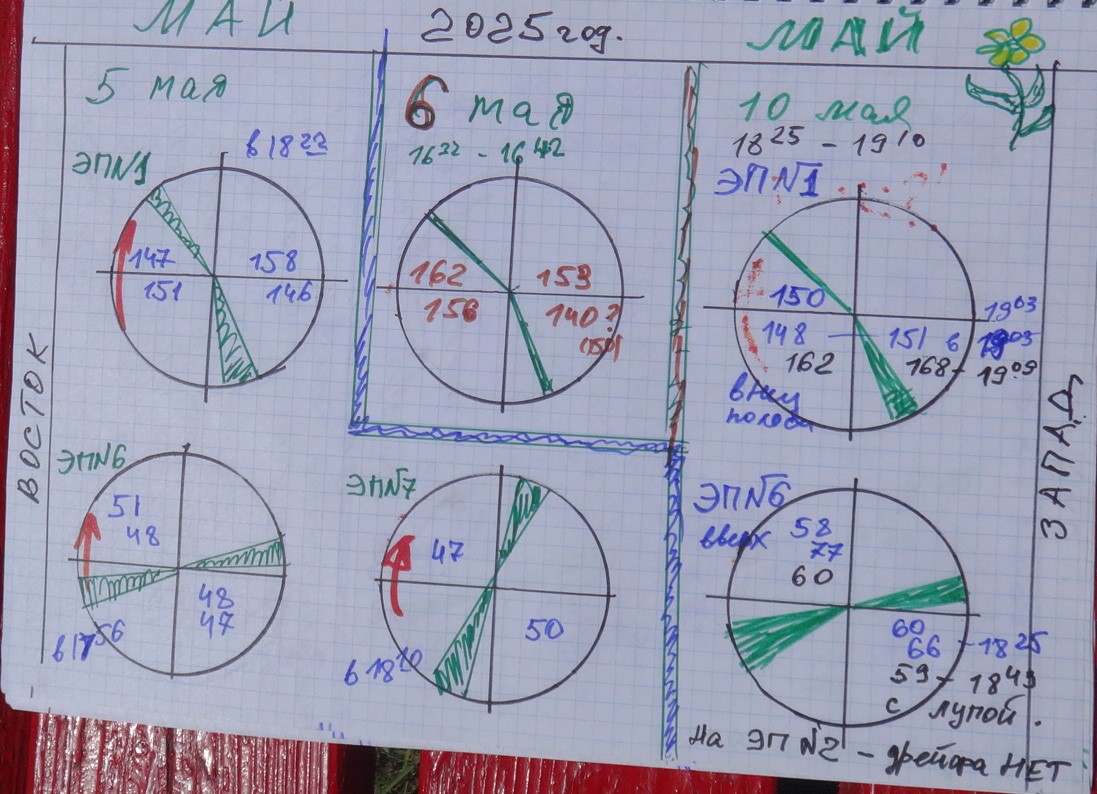 МАЙ 2025 год. МАЙ
5 мая
в 18 23
ЭПN1
147 158
151 146
6 мая
16 22 - 16 42
162 153
156 140?
(150)
10 мая
18 25 - 19 10
ЭПN1
150 19 03
148 - 151 в 19 03
162 168 - 19 09
ВОСТОК
ЗАПАД
ЭПN6
51
48
48
47
в 17 56
ЭПN7
47
50
в 18 20
ЭПN6
вверх 58
77
60
60
66 - 18 25
59 - 18 43
с лупой.
На ЭПN2 - дрейфа НЕТ